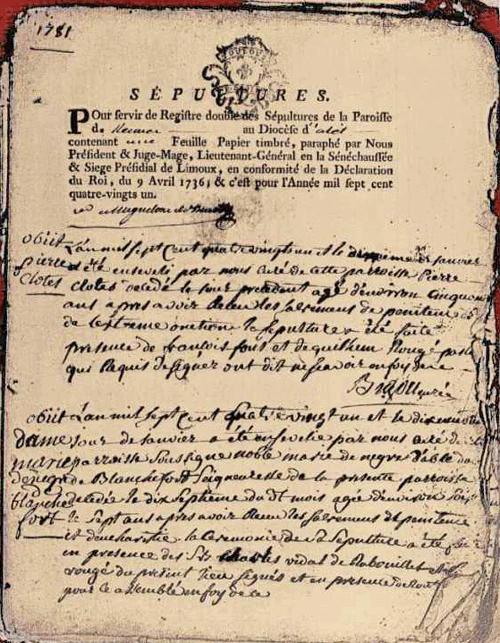 1781
SÉPULTURES.
POur servir de Registre double des Sépultures de la Paroisse
de au Diocèse d'alet
contenant une Feuille Papier timbré, paraphé par Nous
Président & Juge-Mage, Lieutenant-Général en la Sénéchaussée
& Siege Présidial de Limoux, en conformité de la Déclaration
du Roi, du 9 Avril 1736; & c'est pour l'Année mil sept cent
quatre-vingts un.
obiit L'an mil sept cent quatre vingt un et le janvier
pierre a été enseveli par nous curé de cette parroisse Pierre
clotes clotes decedé le jour precedent agé d'environ cinquante
ans apres avoir receu les sacremens de penitence
de l'extreme onction la sepulture a été faite
presence de francois font et de guilhem Rougé
qui Requis de signer ont dit ne scavoir en foy de ce
curé
obiit L'an mil sept cent quatre vingt un et le dixneuvie
dame jour de janvier a été ensevelie par nous curé de
marie parroisse soussigné noble marie de negre Dable
denegre de Blanchefort seigneuresse de la presente parroisse
blanche decedée le dix septieme du dt mois agée d'environ soix
fort te sept ans apres avoir receu les sacremens de penitence
et d'eucharistie la ceremonie de la sepulture a été faite
en presence des Srs charles vidal de
rougé du present lieu signés et en presence de
pour ce assemblé en foy de ce